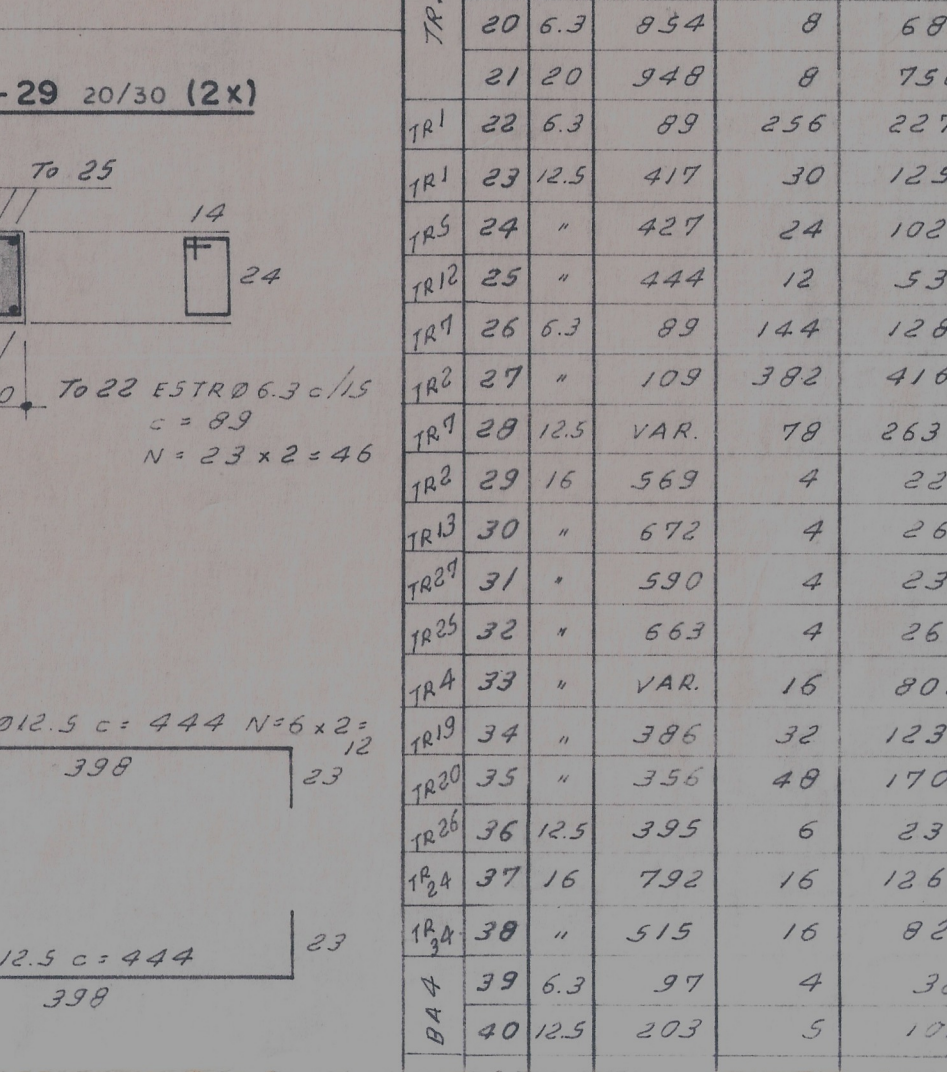 -29 20/30 (2x)
To 25
14
24
To 22 ESTR Ø 6.3 c/15
c = 89
N = 23 x 2 = 46
Ø12.5 c = 444 N=6 x 2 =
12
398
23
23
12.5 c = 444
398
TR. 20 6.3 854 8 68
21 20 948 8 75
TR1 22 6.3 89 256 227
TR1 23 12.5 417 30 125
TR5 24 " 427 24 102
TR12 25 " 444 12 53
TR7 26 6.3 89 144 128
TR2 27 " 109 382 416
TR7 28 12.5 VAR. 78 263
TR2 29 16 569 4 22
TR13 30 " 672 4 26
TR27 31 " 590 4 23
TR25 32 " 663 4 26
TR4 33 " VAR. 16 80
TR19 34 " 386 32 123
TR20 35 " 356 48 170
TR26 36 12.5 395 6 23
TR24 37 16 792 16 126
TR34 38 " 515 16 82
BA4 39 6.3 97 4 3
40 12.5 203 5 10